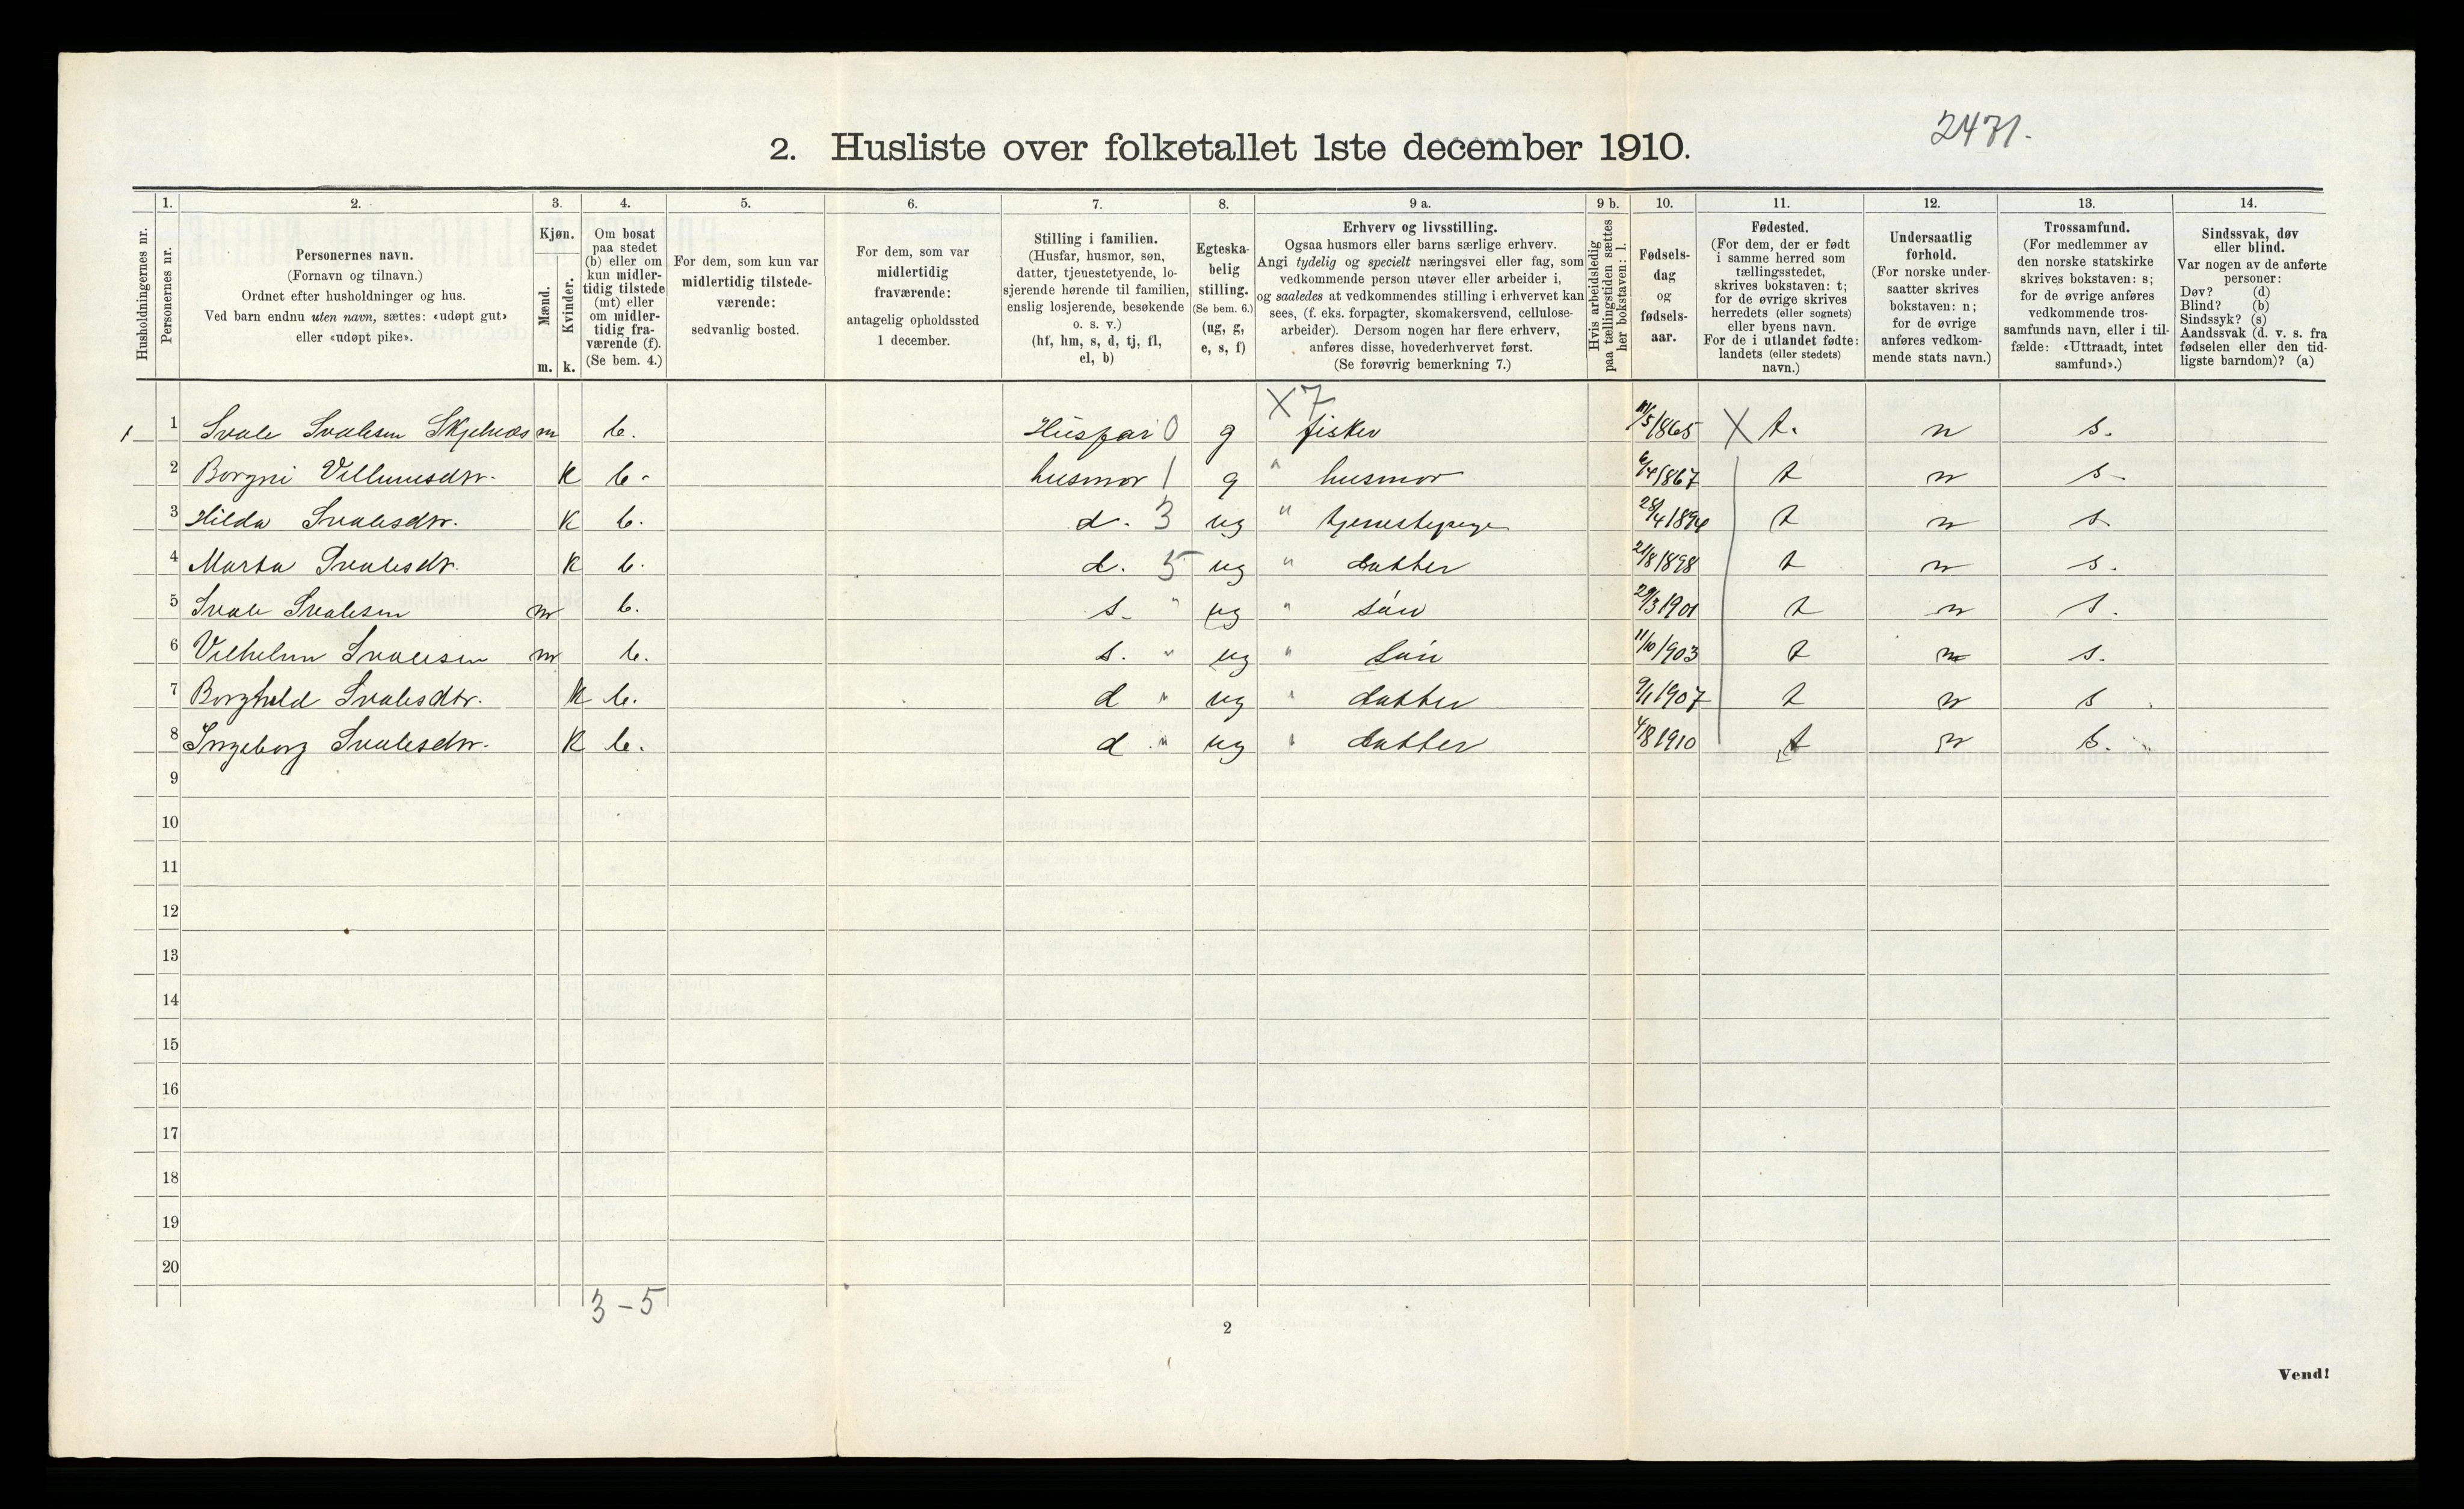 2471.
2. Husliste over folketallet 1ste december 1910.
1. 2. 3. 4. 5. 6. 7. 8. 9 a. 9 b. 10. 11. 12. 13. 14.
Husholdningernes nr.
Personernes nr.
Personernes navn.
(Fornavn og tilnavn.)
Ordnet efter husholdninger og hus.
Ved barn endnu uten navn, sættes: «udøpt gut»
eller «udøpt pike».
Kjøn.
Mænd.
Kvinder.
m. k.
Om bosat
paa stedet
(b) eller om
kun midler-
tidig tilstede
(mt) eller
om midler-
tidig fra-
værende (f).
(Se bem. 4.)
For dem, som kun var
midlertidig tilstede-
værende:
sedvanlig bosted.
For dem, som var
midlertidig
fraværende:
antagelig opholdssted
1 december.
Stilling i familien.
(Husfar, husmor, søn,
datter, tjenestetyende, lo-
sjerende hørende til familien,
enslig losjerende, besøkende
o. s. v.)
(hf, hm, s, d, tj, fl,
el, b)
Egteska-
belig
stilling.
(Se bem. 6.)
(ug, g,
e, s, f)
Erhverv og livsstilling.
Ogsaa husmors eller barns særlige erhverv.
Angi tydelig og specielt næringsvei eller fag, som
vedkommende person utøver eller arbeider i,
og saaledes at vedkommendes stilling i erhvervet kan
sees, (f. eks. forpagter, skomakersvend, cellulose-
arbeider). Dersom nogen har flere erhverv,
anføres disse, hovederhvervet først.
(Se forøvrig bemerkning 7.)
Hvis arbeidsledig
paa tællingstiden sættes
her bokstaven: l.
Fødsels-
dag
og
fødsels-
aar.
Fødested.
(For dem, der er født
i samme herred som
tællingsstedet,
skrives bokstaven: t;
for de øvrige skrives
herredets (eller sognets)
eller byens navn.
For de i utlandet fødte:
landets (eller stedets)
navn.)
Undersaatlig
forhold.
(For norske under-
saatter skrives
bokstaven: n;
for de øvrige
anføres vedkom-
mende stats navn.)
Trossamfund.
(For medlemmer av
den norske statskirke
skrives bokstaven: s;
for de øvrige anføres
vedkommende tros-
samfunds navn, eller i til-
fælde: «Uttraadt, intet
samfund».)
Sindssvak, døv
eller blind.
Var nogen av de anførte
personer:
Døv? (d)
Blind? (b)
Sindssyk? (s)
Aandssvak (d. v. s. fra
fødselen eller den tid-
ligste barndom)? (a)
X 7
1 1 Svale Svalesen Skjelnæs m b. Husfar 0 g fisker 11/5 1865 X t. n s.
2 Borgni Villumsdtr. k b. husmor 1 g " husmor 6/4 1867 t n s.
3 Hilda Svalesdtr. k b. d. 3 ug " tjenestepige 28/4 1894 t n s.
4 Marta Svalesdtr. k b. d. 5 ug " datter 21/8 1898 t n s.
5 Svale Svalesen m b. s. " ug " sön 29/3 1901 t n s.
6 Vilhelm Svalesen m b. s. " ug " Sön 11/10 1903 t n s.
7 Borghild Svalesdtr. k b. d " ug " datter 9/1 1907 t n s
8 Ingeborg Svalesdtr. k b. d. " ug " datter 4/8 1910 t n s.
9
10
11
12
13
14
15
16
17
18
19
20
3 – 5
2
Vend!